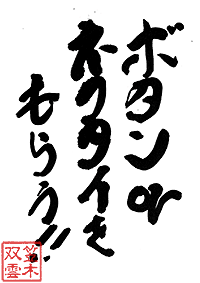 ボタンor
ネクタイを
もらう!!
双雲